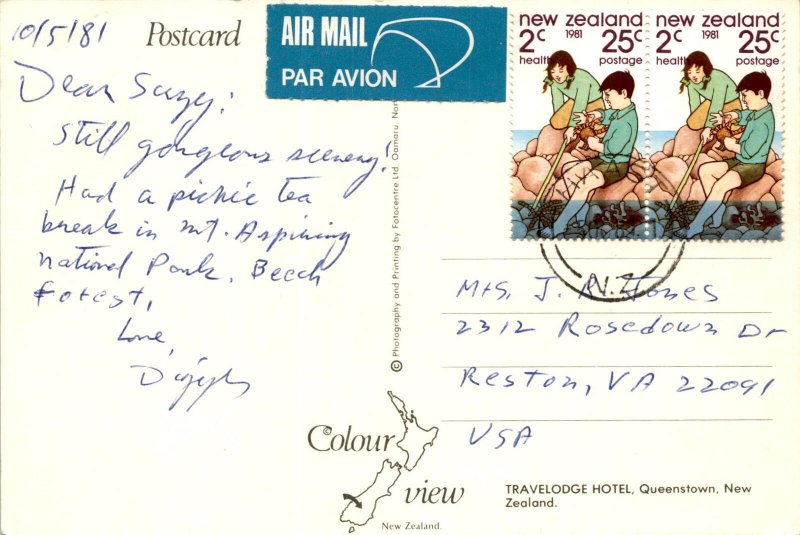 10/5/81
Postcard
AIR MAIL
PAR AVION
new zealand
2c 1981 25c
health postage
new zealand
2c 1981 25c
health postage
Dear Suzy:
Still gorgeous scenery!
Had a picnic tea
break in Mt. Aspiring
National Park. Beech
Forest,
Love,
N.Z.
Mrs. J. R. Jones
2312 Rosedown Dr
Reston, VA 22091
USA
© Photography and Printing by Fotocentre Ltd. Oamaru,
Colour
view
New Zealand.
TRAVELODGE HOTEL, Queenstown, New
Zealand.